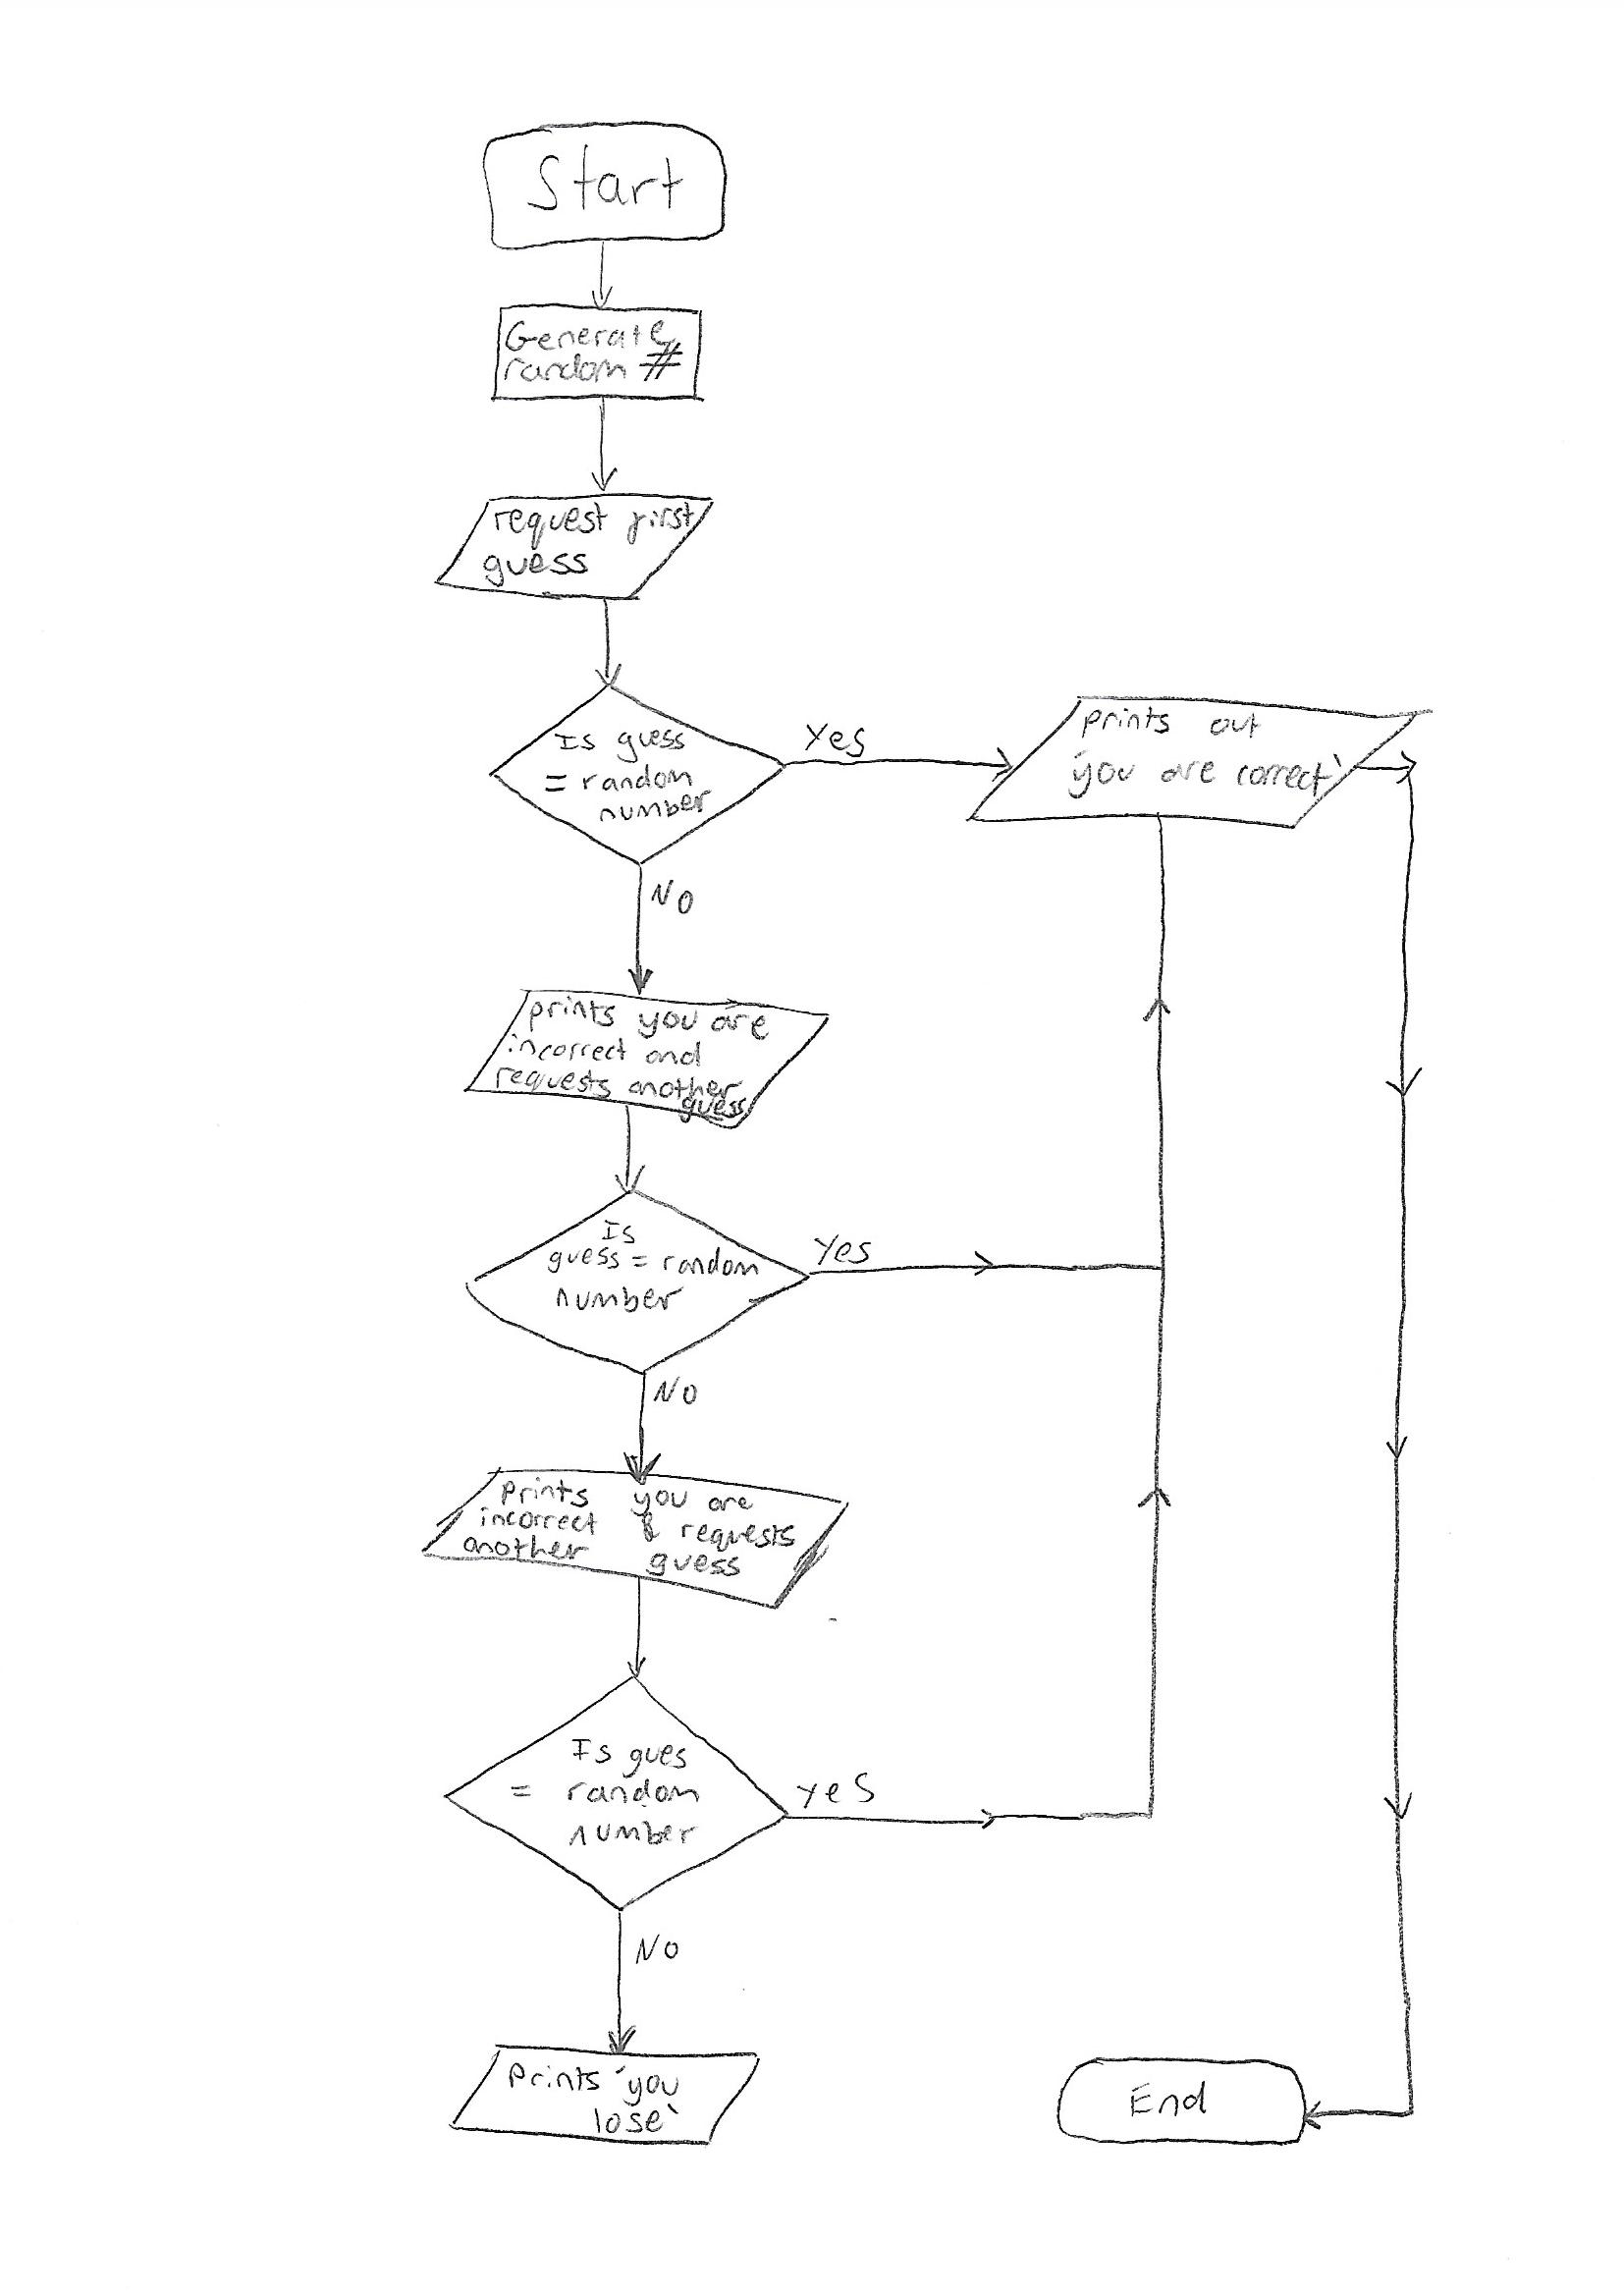 Start
Generate
random #
request first
guess
Is guess
= random
number
Yes
prints out
"you are correct"
No
prints you are
incorrect and
requests another
guess
Is
guess = random
number
Yes
No
Prints you are
incorrect & requests
another guess
Is gues
= random
number
yes
No
Prints "you
lose"
End